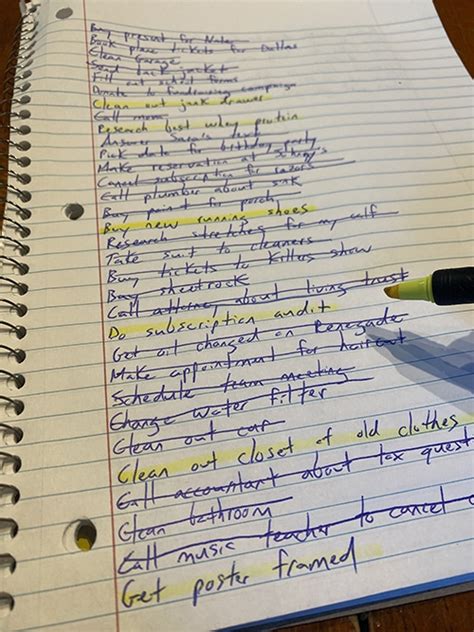 Buy present for Nate
Book plane tickets for Dallas
Clean Garage
Send back jacket
Fill out school forms
Donate to fundraising campaign
Clean out junk drawer
Call mom
Research best whey protein
Answer Sara's
Pick date for birthday party
Make reservation at
Cancel subscription for razors
Call plumber about sink
Buy paint for porch
Buy new running shoes
Research stretches for my calf
Take suit to cleaners
Buy tickets to Killers show
Buy sheetrock
Call attorney about living trust
Do subscription audit
Get oil changed on Renegade
Make appointment for haircut
Schedule team meeting
Change water filter
Clean out car
Clean out closet of old clothes
Call accountant about tax quest
Clean bathroom
Call music teacher to cancel
Get poster framed